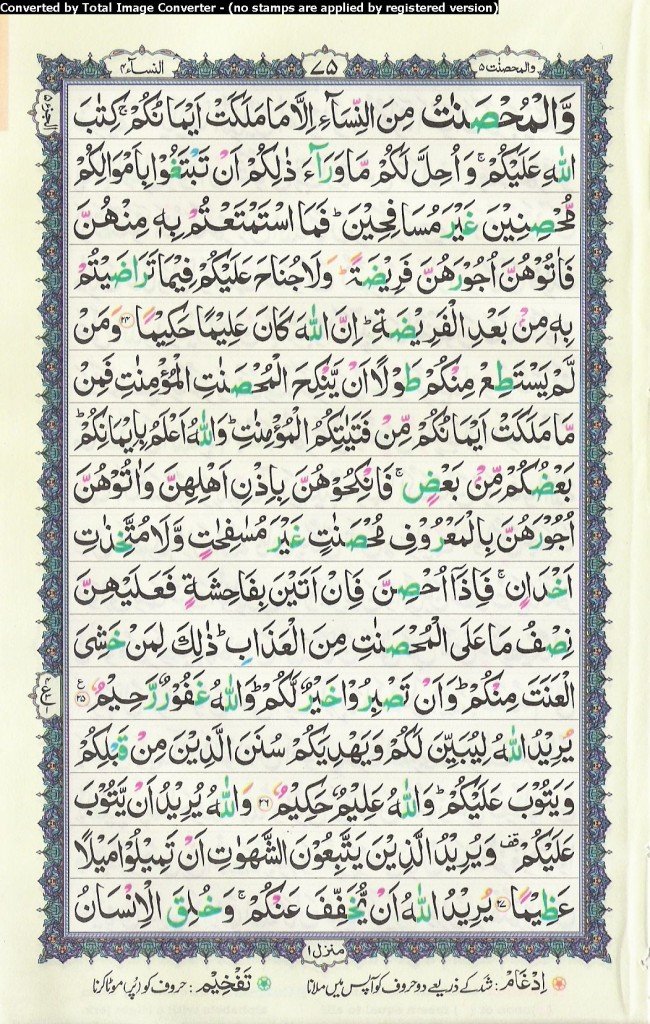 Converted by Total Image Converter - (no stamps are applied by registered version)
والمحصنٰت ۵
۷۵
النسآء ۴
وَّالْمُحْصَنٰتُ مِنَ النِّسَآءِ اِلَّا مَا مَلَكَتْ اَیْمَانُكُمْ ۚ كِتٰبَ
اللّٰهِ عَلَیْكُمْ ۚ وَ اُحِلَّ لَكُمْ مَّا وَرَآءَ ذٰلِكُمْ اَنْ تَبْتَغُوْا بِاَمْوَالِكُمْ
مُّحْصِنِیْنَ غَیْرَ مُسَافِحِیْنَ ؕ فَمَا اسْتَمْتَعْتُمْ بِهٖ مِنْهُنَّ
فَاٰتُوْهُنَّ اُجُوْرَهُنَّ فَرِیْضَةً ؕ وَ لَا جُنَاحَ عَلَیْكُمْ فِیْمَا تَرٰضَیْتُمْ
بِهٖ مِنْۢ بَعْدِ الْفَرِیْضَةِ ؕ اِنَّ اللّٰهَ كَانَ عَلِیْمًا حَكِیْمًا ۲۴ وَ مَنْ
لَّمْ یَسْتَطِعْ مِنْكُمْ طَوْلًا اَنْ یَّنْكِحَ الْمُحْصَنٰتِ الْمُؤْمِنٰتِ فَمِنْ
مَّا مَلَكَتْ اَیْمَانُكُمْ مِّنْ فَتَیٰتِكُمُ الْمُؤْمِنٰتِ ؕ وَ اللّٰهُ اَعْلَمُ بِاِیْمَانِكُمْ ؕ
بَعْضُكُمْ مِّنْۢ بَعْضٍ ۚ فَانْكِحُوْهُنَّ بِاِذْنِ اَهْلِهِنَّ وَ اٰتُوْهُنَّ
اُجُوْرَهُنَّ بِالْمَعْرُوْفِ مُحْصَنٰتٍ غَیْرَ مُسٰفِحٰتٍ وَّ لَا مُتَّخِذٰتِ
اَخْدَانٍ ۚ فَاِذَاۤ اُحْصِنَّ فَاِنْ اَتَیْنَ بِفَاحِشَةٍ فَعَلَیْهِنَّ
نِصْفُ مَا عَلَى الْمُحْصَنٰتِ مِنَ الْعَذَابِ ؕ ذٰلِكَ لِمَنْ خَشِیَ
الْعَنَتَ مِنْكُمْ ؕ وَ اَنْ تَصْبِرُوْا خَیْرٌ لَّكُمْ ؕ وَ اللّٰهُ غَفُوْرٌ رَّحِیْمٌ ۲۵
یُرِیْدُ اللّٰهُ لِیُبَیِّنَ لَكُمْ وَ یَهْدِیَكُمْ سُنَنَ الَّذِیْنَ مِنْ قَبْلِكُمْ
وَ یَتُوْبَ عَلَیْكُمْ ؕ وَ اللّٰهُ عَلِیْمٌ حَكِیْمٌ ۲۶ وَ اللّٰهُ یُرِیْدُ اَنْ یَّتُوْبَ
عَلَیْكُمْ ۫ وَ یُرِیْدُ الَّذِیْنَ یَتَّبِعُوْنَ الشَّهَوٰتِ اَنْ تَمِیْلُوْا مَیْلًا
عَظِیْمًا ۲۷ یُرِیْدُ اللّٰهُ اَنْ یُّخَفِّفَ عَنْكُمْ ۚ وَ خُلِقَ الْاِنْسَانُ
منزل ۱
اِدْغَام : شد کے ذریعے دو حروف کو آپس میں ملانا
تَفْخِیْم : حروف کو (پُر) موٹا کرنا